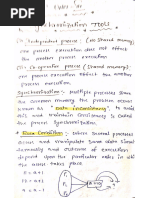 UNIT - III
1. Synchronization Tools
① Independent process : (No Shared memory)
one process execution does not effect
the another process execution.
② Co-operation process : (Shared memory)
one process execution effect the another
process execution.
Synchronization :- Multiple processes share
the common memory the problem occur
known as "data inconsistency", to avoid
this and maintain consistency is called
the process synchronization.
* Race Condition :- Where several processes
access and manipulate same data
and outcome of execution
depend upon the particular order in which
the access takes place.